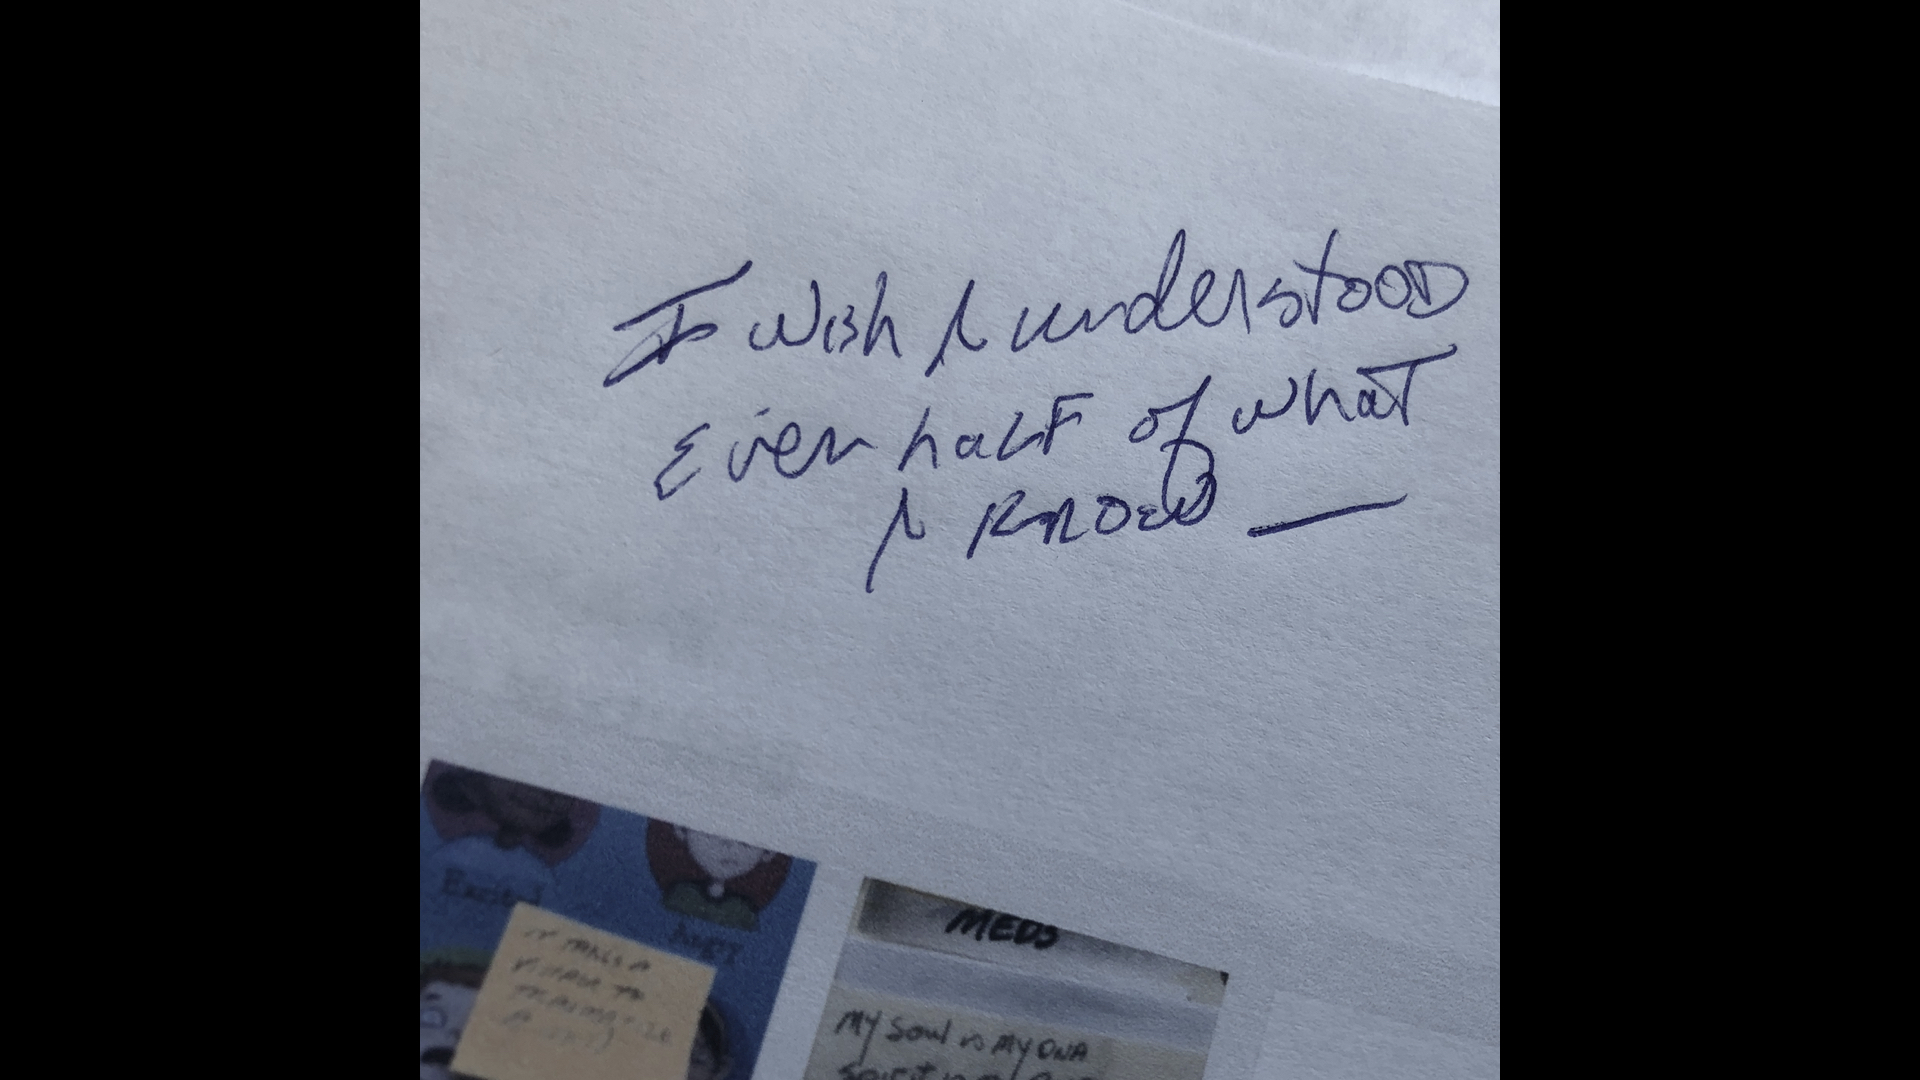 I wish i understood
Even half of what
i know —
Excited
Angry
IT TAKES A
VILLAGE TO
TRAUMATIZE
MEDS
MY Soul is MY DNA